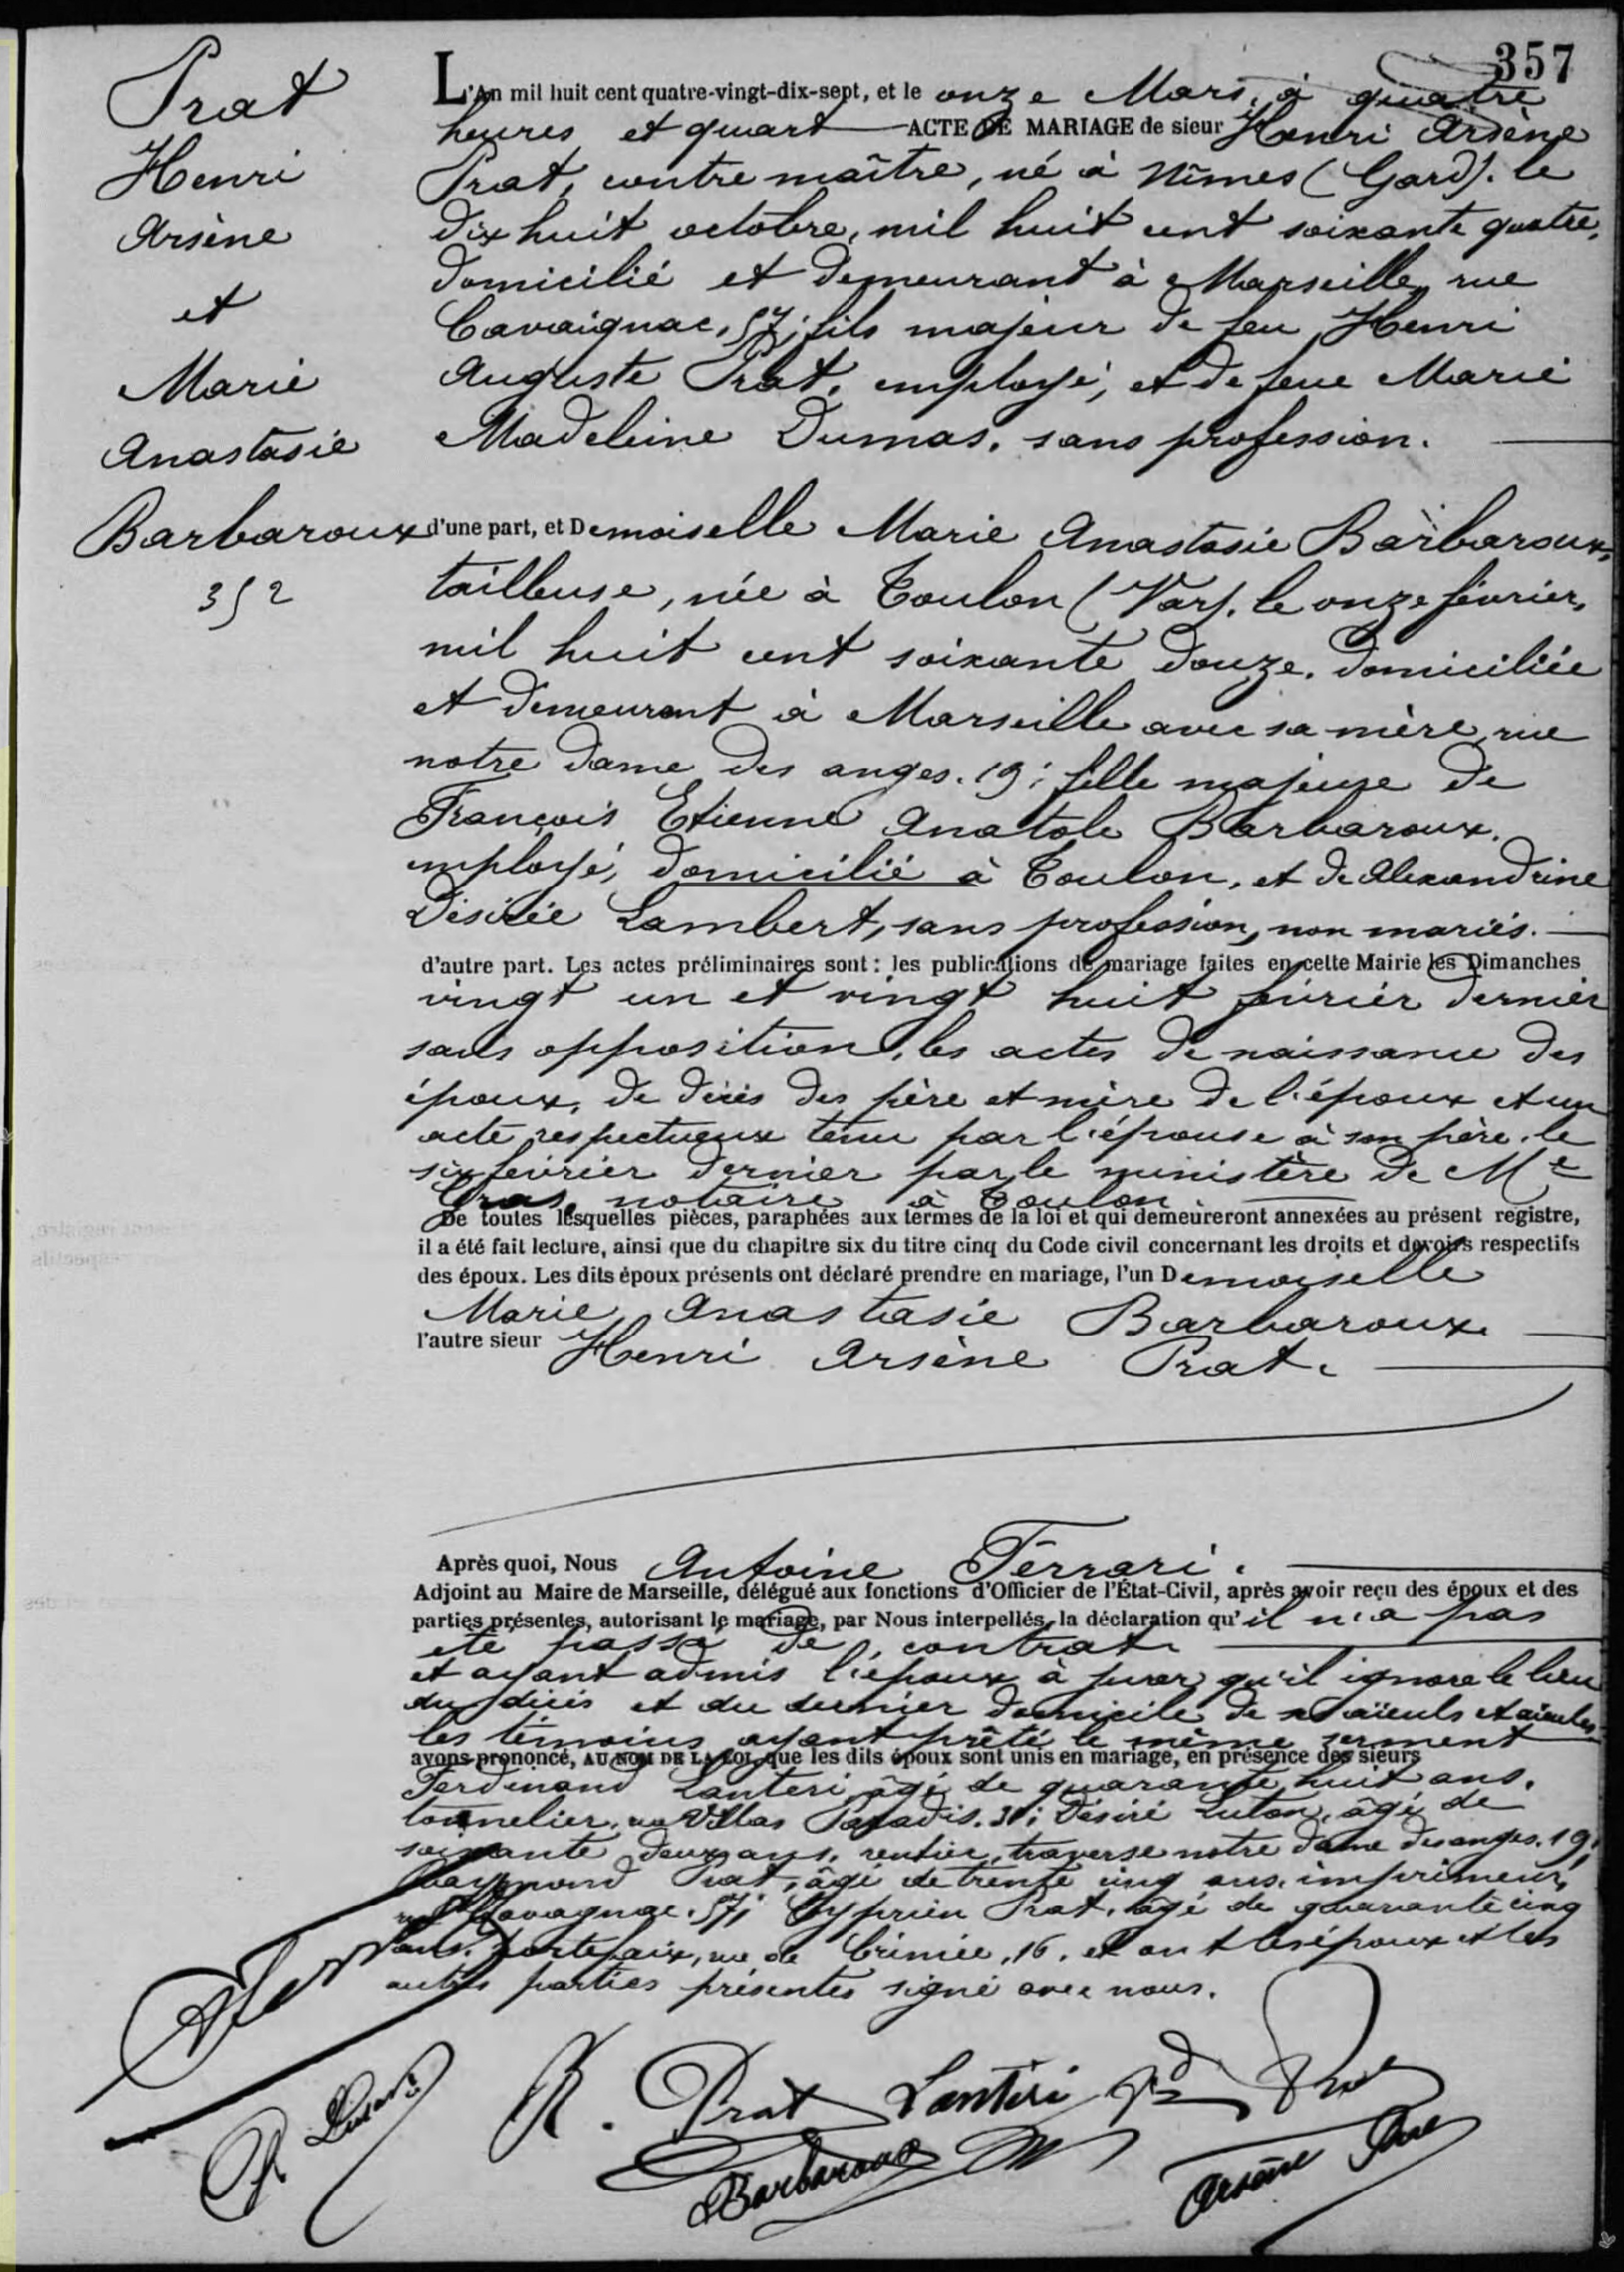 357
Prat
Henri
Arsène
et
Marie
Anastasie
Barbaroux
352
L'An mil huit cent quatre-vingt-dix-sept, et le onze Mars, à quatre
heures et quart ACTE DE MARIAGE de sieur Henri Arsène
Prat, contre maître, né à Nîmes (Gard). le
dix huit octobre, mil huit cent soixante quatre,
domicilié et demeurant à Marseille, rue
Cavaignac, 57; fils majeur de feu Henri
Auguste Prat, employé, et de feue Marie
Madeleine Dumas, sans profession.
d'une part, et Demoiselle Marie Anastasie Barbaroux,
tailleuse, née à Toulon (Var). le onze février,
mil huit cent soixante douze, domiciliée
et demeurant à Marseille avec sa mère, rue
notre Dame des anges. 19; fille majeure de
François Etienne Anatole Barbaroux,
employé, domicilié à Toulon, et de Alexandrine
Désirée Lambert, sans profession, non mariés.
d'autre part. Les actes préliminaires sont : les publications de mariage faites en cette Mairie les Dimanches
vingt un et vingt huit février dernier
sans opposition, les actes de naissance des
époux, de décès des père et mère de l'époux et un
acte respectueux tenu par l'épouse à son père, le
six février dernier par le ministère de Me
Gras, notaire à Toulon.
De toutes lesquelles pièces, paraphées aux termes de la loi et qui demeureront annexées au présent registre,
il a été fait lecture, ainsi que du chapitre six du titre cinq du Code civil concernant les droits et devoirs respectifs
des époux. Les dits époux présents ont déclaré prendre en mariage, l'un Demoiselle
Marie Anastasie Barbaroux.
l'autre sieur Henri Arsène Prat.
Après quoi, Nous Antoine Ferrari.
Adjoint au Maire de Marseille, délégué aux fonctions d'Officier de l'État-Civil, après avoir reçu des époux et des
parties présentes, autorisant le mariage, par Nous interpellés, la déclaration qu'il n'a pas
été passé de contrat
et ayant admis l'époux à jurer qu'il ignore le lieu
du décès et du dernier domicile de aïeuls et aïeules
les témoins ayant prêté le même serment
avons prononcé, AU NOM DE LA LOI, que les dits époux sont unis en mariage, en présence des sieurs
Ferdinand Lanteri, âgé de quarante huit ans,
tonnelier, Paradis. Désiré âgé de
soixante deux ans, rentier, traverse notre dame des anges. 19;
Raymond Prat, âgé de trente cinq ans, imprimeur,
rue Cavaignac. 57; Cyprien Prat, âgé de quarante cinq
ans, portefaix, rue de Crimée, 16. et ont les époux et les
autres parties présentes signé avec nous.
R. Prat Lantéri
Barbaroux
Arsène